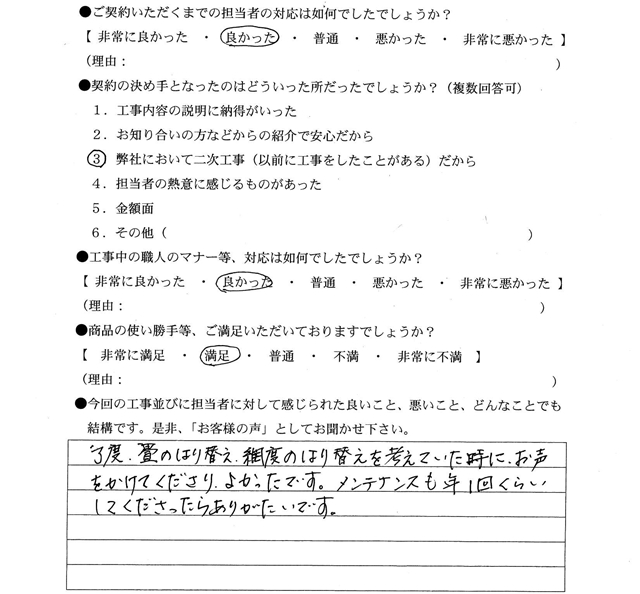 ●ご契約いただくまでの担当者の対応は如何でしたでしょうか？
【 非常に良かった ・ 良かった ・ 普通 ・ 悪かった ・ 非常に悪かった 】
（理由： ）
●契約の決め手となったのはどういった所だったでしょうか？（複数回答可）
１．工事内容の説明に納得がいった
２．お知り合いの方などからの紹介で安心だから
３ 弊社において二次工事（以前に工事をしたことがある）だから
４．担当者の熱意に感じるものがあった
５．金額面
６．その他（ ）
●工事中の職人のマナー等、対応は如何でしたでしょうか？
【 非常に良かった ・ 良かった ・ 普通 ・ 悪かった ・ 非常に悪かった 】
（理由： ）
●商品の使い勝手等、ご満足いただいておりますでしょうか？
【 非常に満足 ・ 満足 ・ 普通 ・ 不満 ・ 非常に不満 】
（理由： ）
●今回の工事並びに担当者に対して感じられた良いこと、悪いこと、どんなことでも
結構です。是非、「お客様の声」としてお聞かせ下さい。
丁度、畳のはり替え、網戸のはり替えを考えていた時に、お声
をかけてくださり、よかったです。メンテナンスも年1回くらい
してくださったらありがたいです。